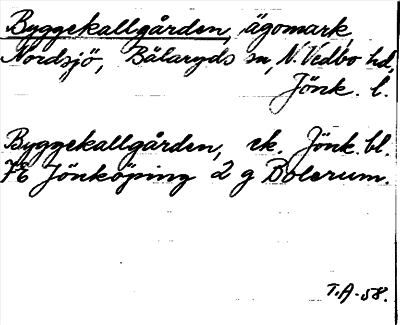 Byggekallgården, ägomark,
Nordsjö, Bälaryds sn, N. Vedbo hd,
Jönk. l.
Byggekallgården, ek. Jönk. bl.
7E Jönköping 2 g Bolerum.
T.A. -58.